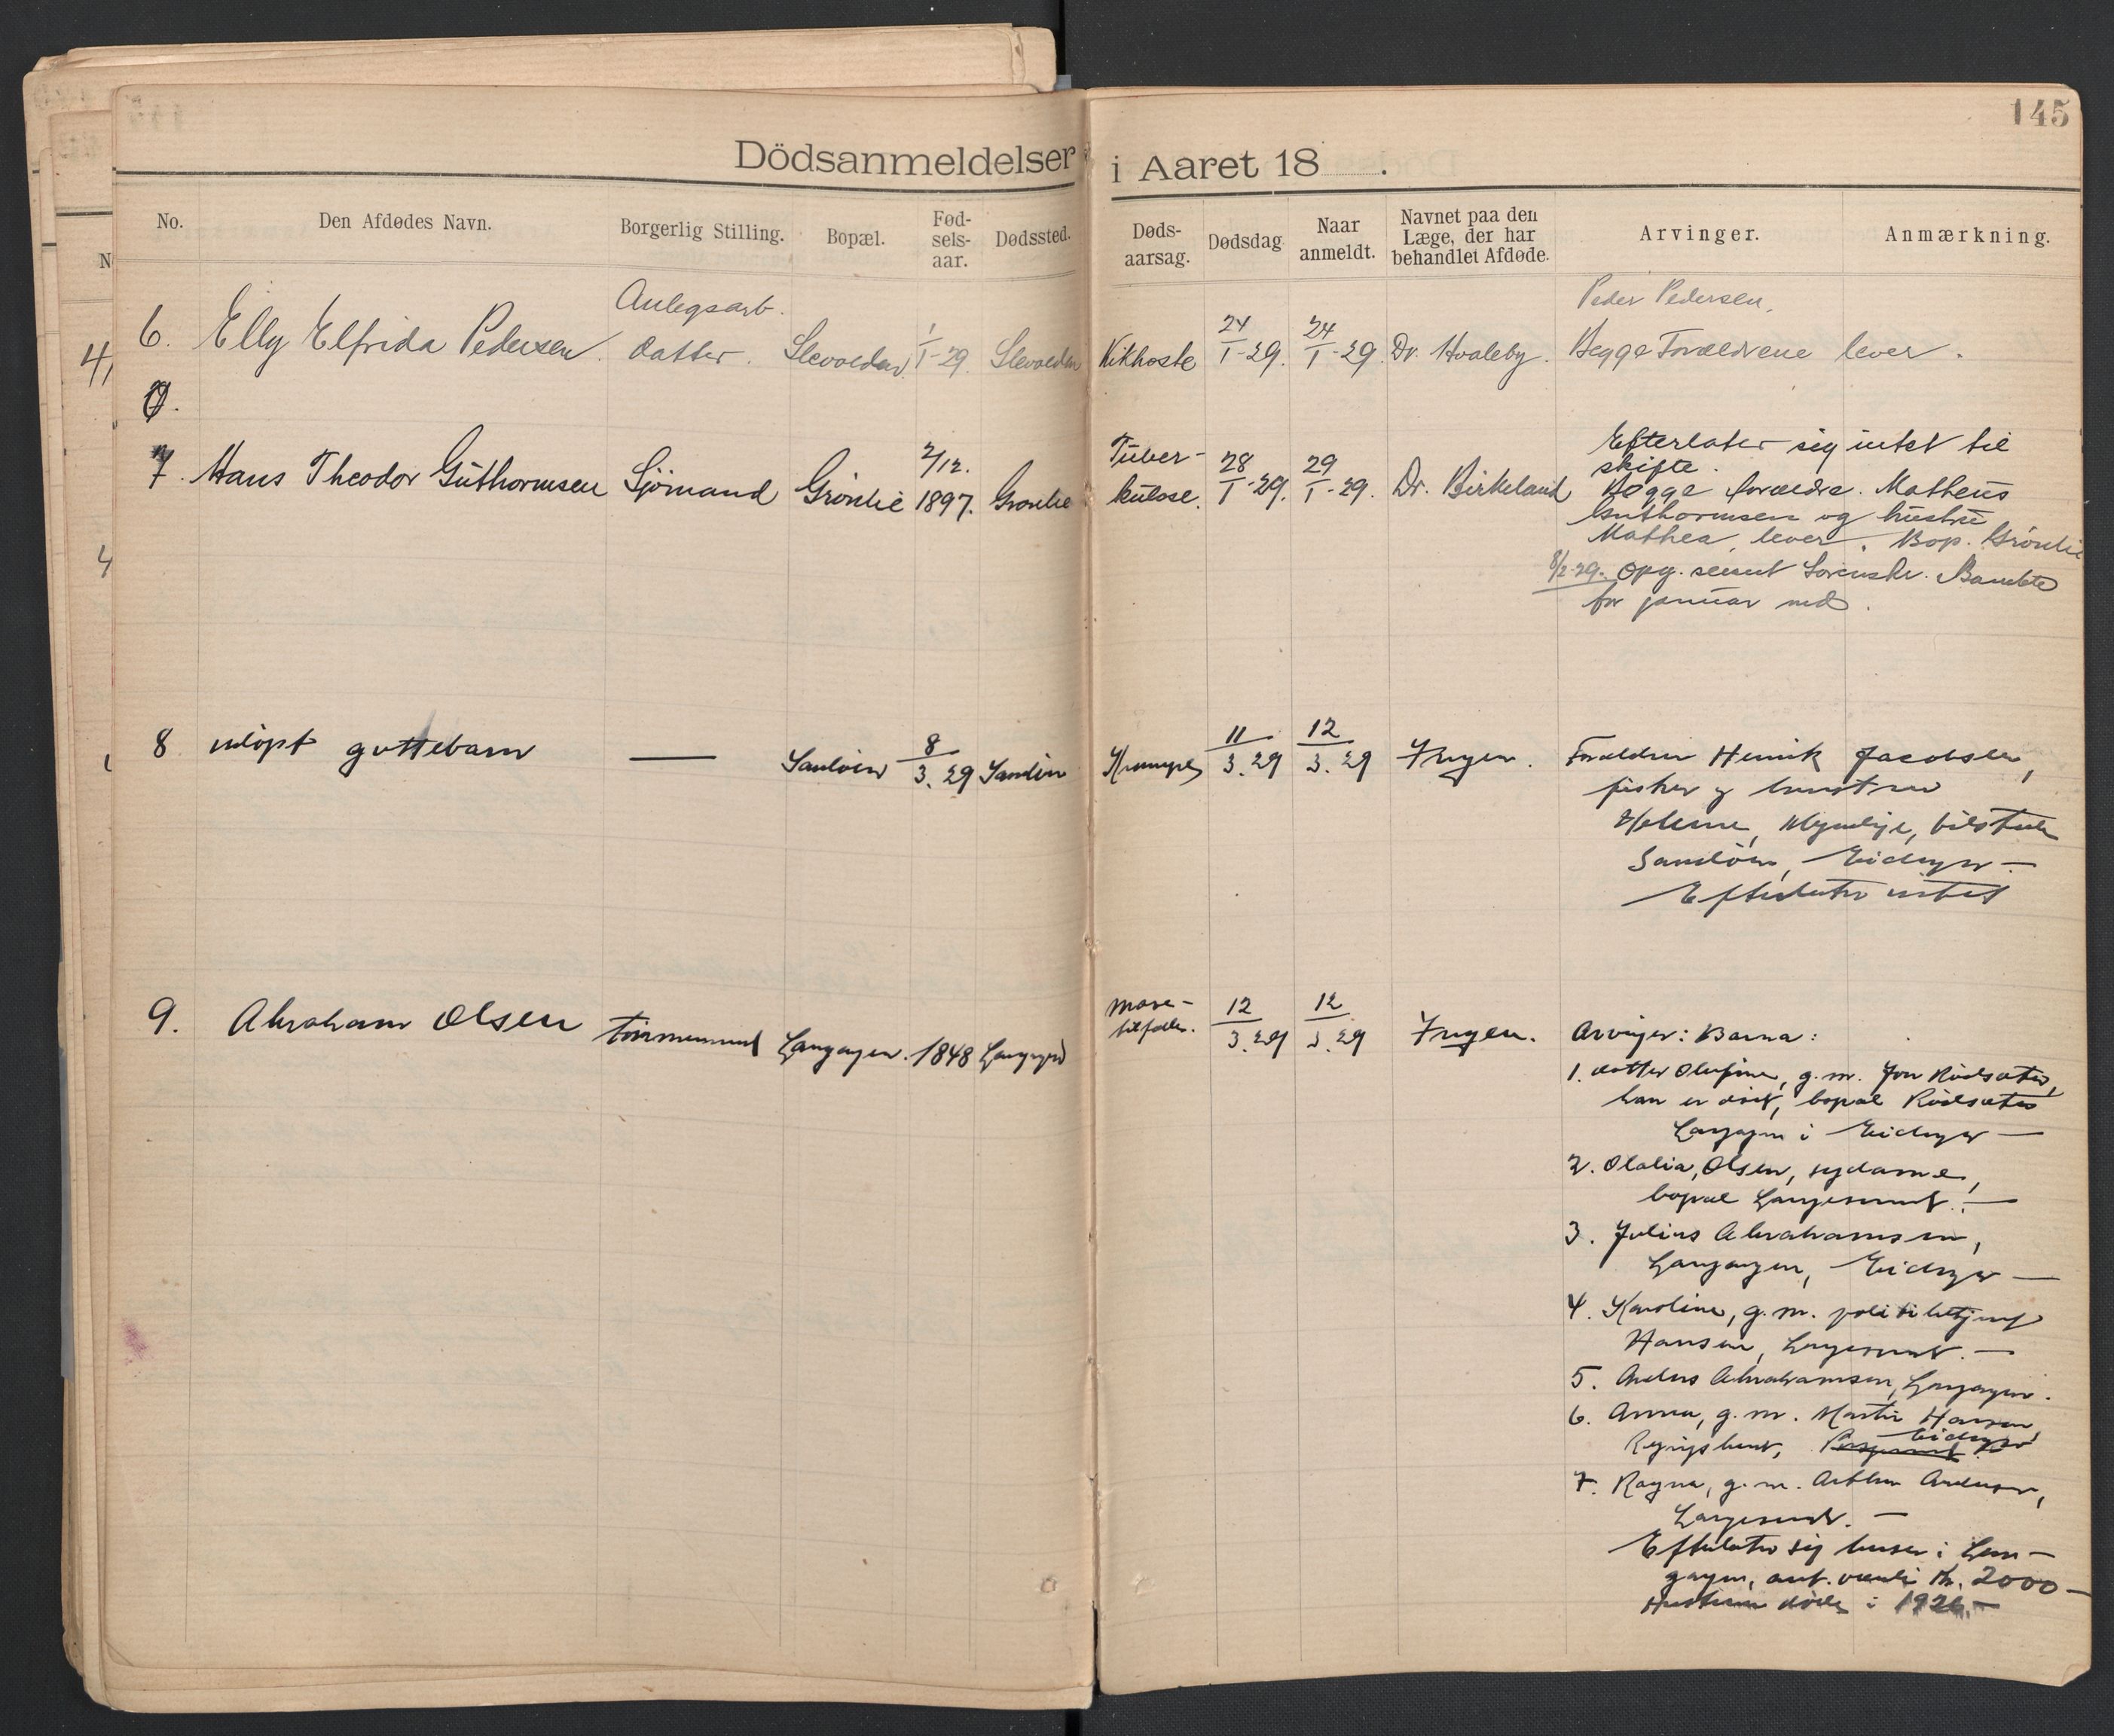 145
Dödsanmeldelser i Aaret 18 .
No. Den Afdødes Navn. Borgerlig Stilling. Bopæl. Fød-sels-aar. Dødssted. Døds-aarsag. Dødsdag Naar anmeldt. Navnet paa den Læge, der har behandlet Afdøde. Arvinger. Anmærkning.
Anlegsarb. Peder Pedersen,
6. Elly Elfrida Pedersen. datter. Slevolden 1/1-29. Slevolden Kikhoste 24/1-29. 24/1-29. Dr. Hvaleby. Begge Forældrene lever.
7. Hans Theodor Guthormsen Sjömand Grönlie 2/12. 1897. Gronlie Tuber-kulose. 28/1-29. 29/1-29. Dr. Birkeland Efterlater sig intet til
skifte.
Begge forældre. Matheus
Guthormsen og hustru
Mathea, lever. Bop. Grönlie
8/2-29. Opg. sendt Sorenskr. Bamble
for januar md.
8 udöpt guttebarn — Sandöen 8/3.29 Sandöen Krampe 11/3.29 12/3.29 Ingen. Foreldrene Henrik Jacobsen,
fisker og hustru
Helene, Myndige,
Sandöen, Eidanger —
Efterlater intet
9. Abraham Olsen tömmermand Langangen. 1848 Langangen Mave-tilfælde. 12/3.29 12/3.29 Ingen. Arvinger: Barna:
1. datter Olufine, g.m. Jon Rödsæter,
han er död, bopæl Rödsæter
Langangen i Eidanger —
2. Olalia, Olsen, sydame,
bopæl Langesund. —
3. Julius Abrahamsen,
Langangen, Eidanger —
4. Karoline, g.m. politibetjent
Hansen, Langesund. —
5. Anders Abrahamsen, Langangen.
6. Anna, g.m. Martin Hansen,
Eidanger
7. Ragna, g.m. Arthur Andersen,
Langesund. —
Efterlater sig huser i Lan-
gangen, ant. verdi kr. 2000 —
Hustruen döde i 1926. —